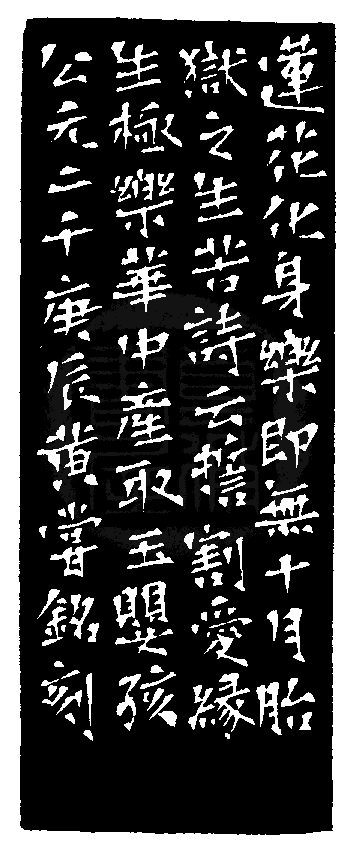 蓮花化身樂即無十月胎
獄之生苦詩云誓割愛緣
生極樂華中產取玉嬰孩
公元二千庚辰黄嘗銘刻